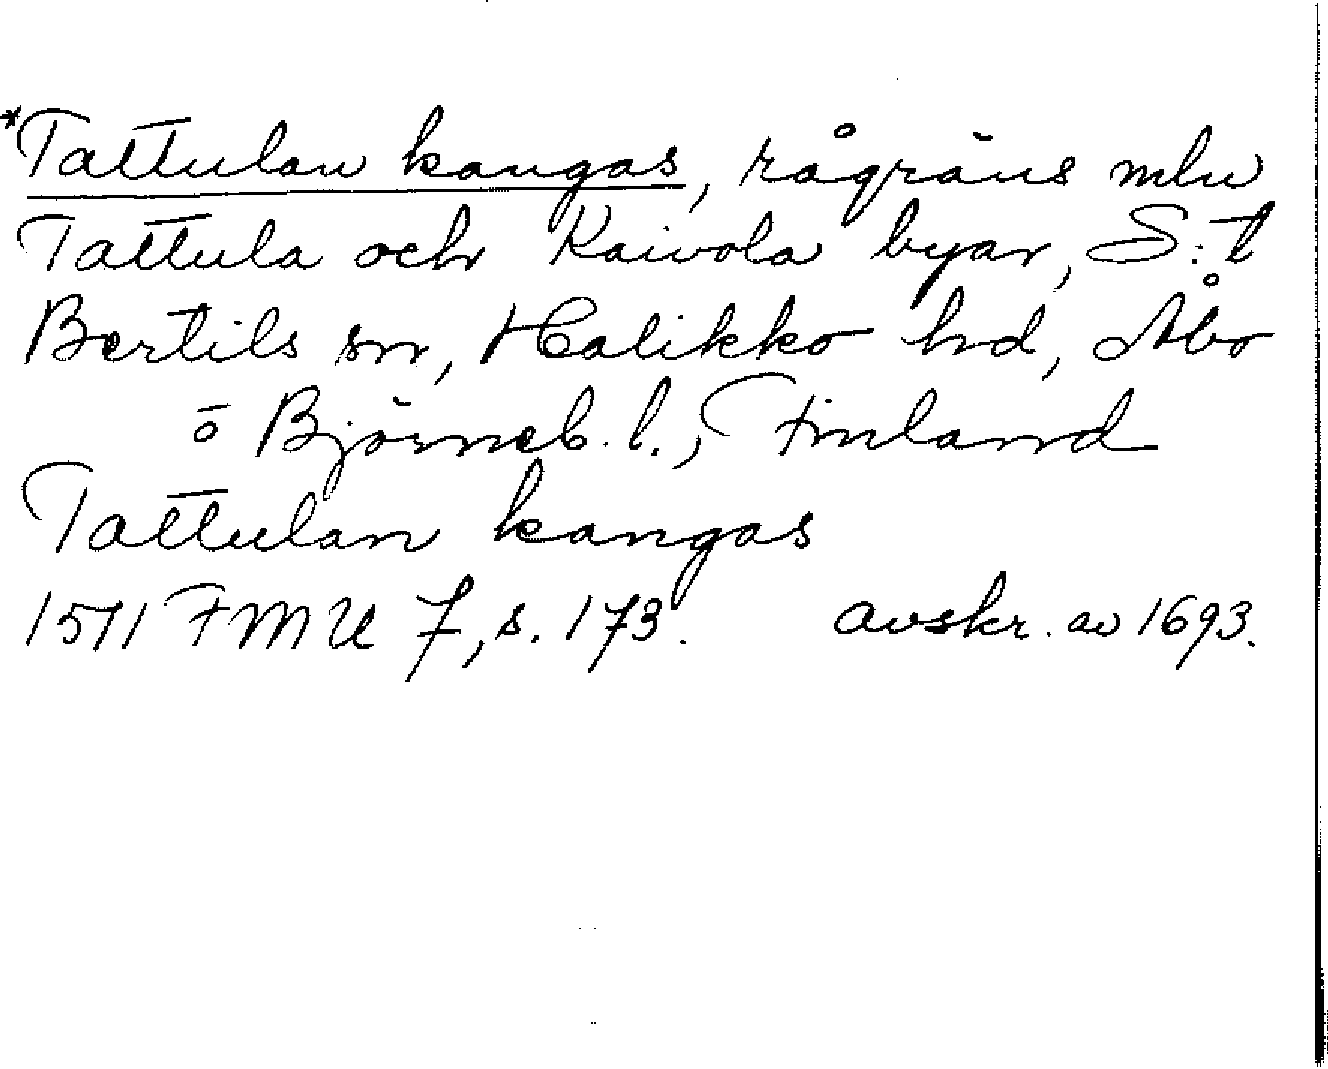 *Tattulan kangas, rågräns mln
Tattula och Kaivola byar, S:t
Bertils sn, Halikko hd, Åbo
o Björneb. l., Finland
Tattulan kangas
1511 FMU 7, s. 173. avskr. av 1693.